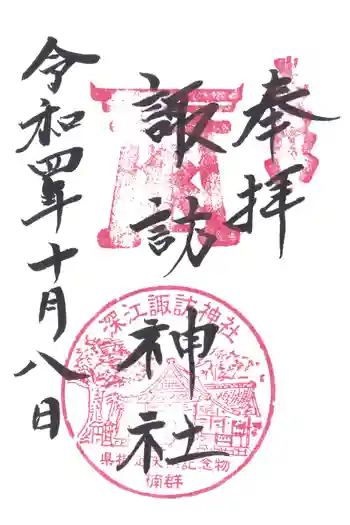 奉拝
諏訪神社
令和四年十月八日
深江諏訪神社
県指定天然記念物
楠群